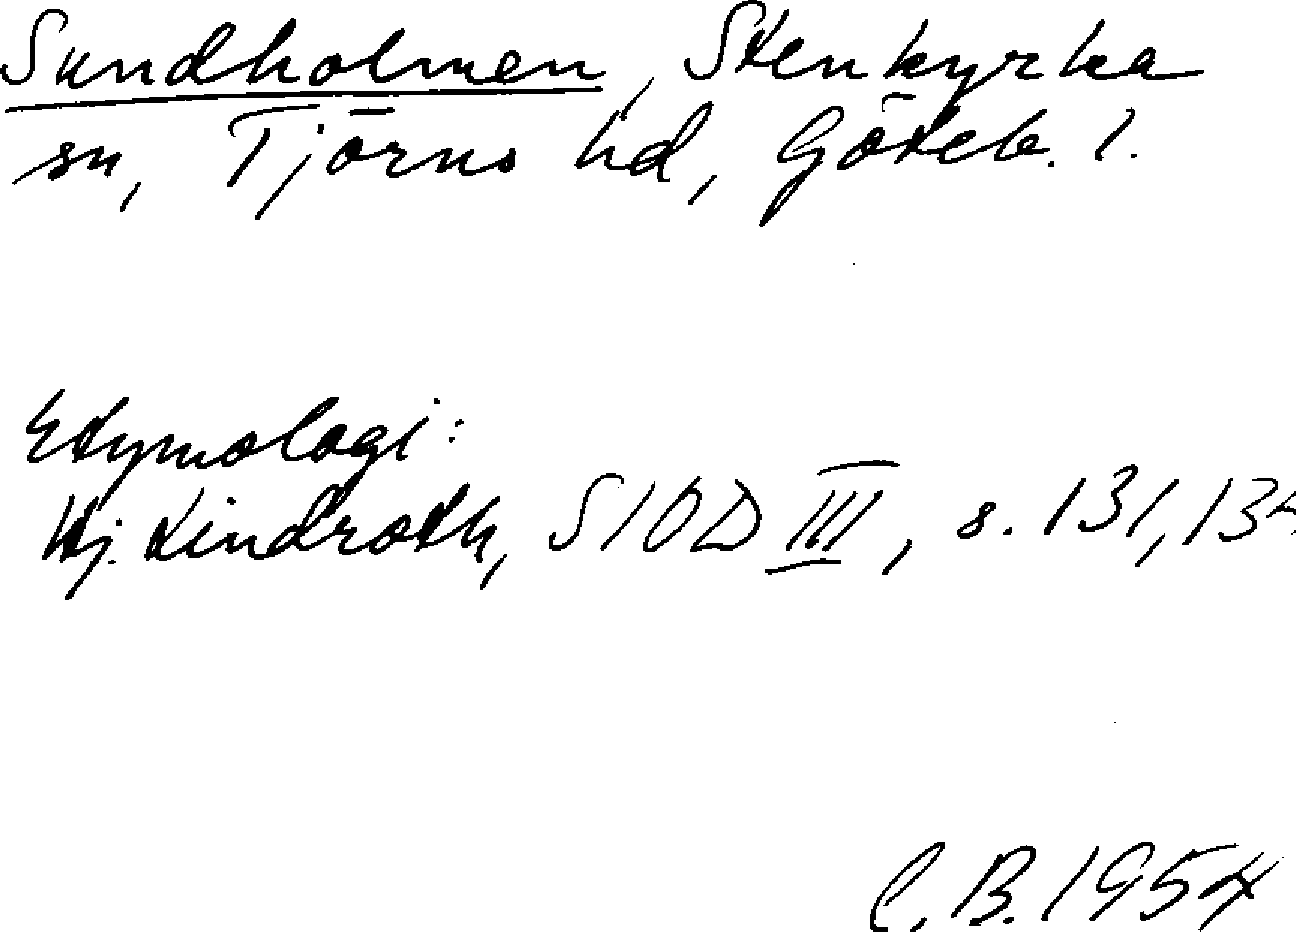 Sundholmen, Stenkyrka
sn, Tjörns hd, Göteb. l.
Etymologi:
Hj. Lindroth, SIOD III, s. 131, 134
C. B. 1954